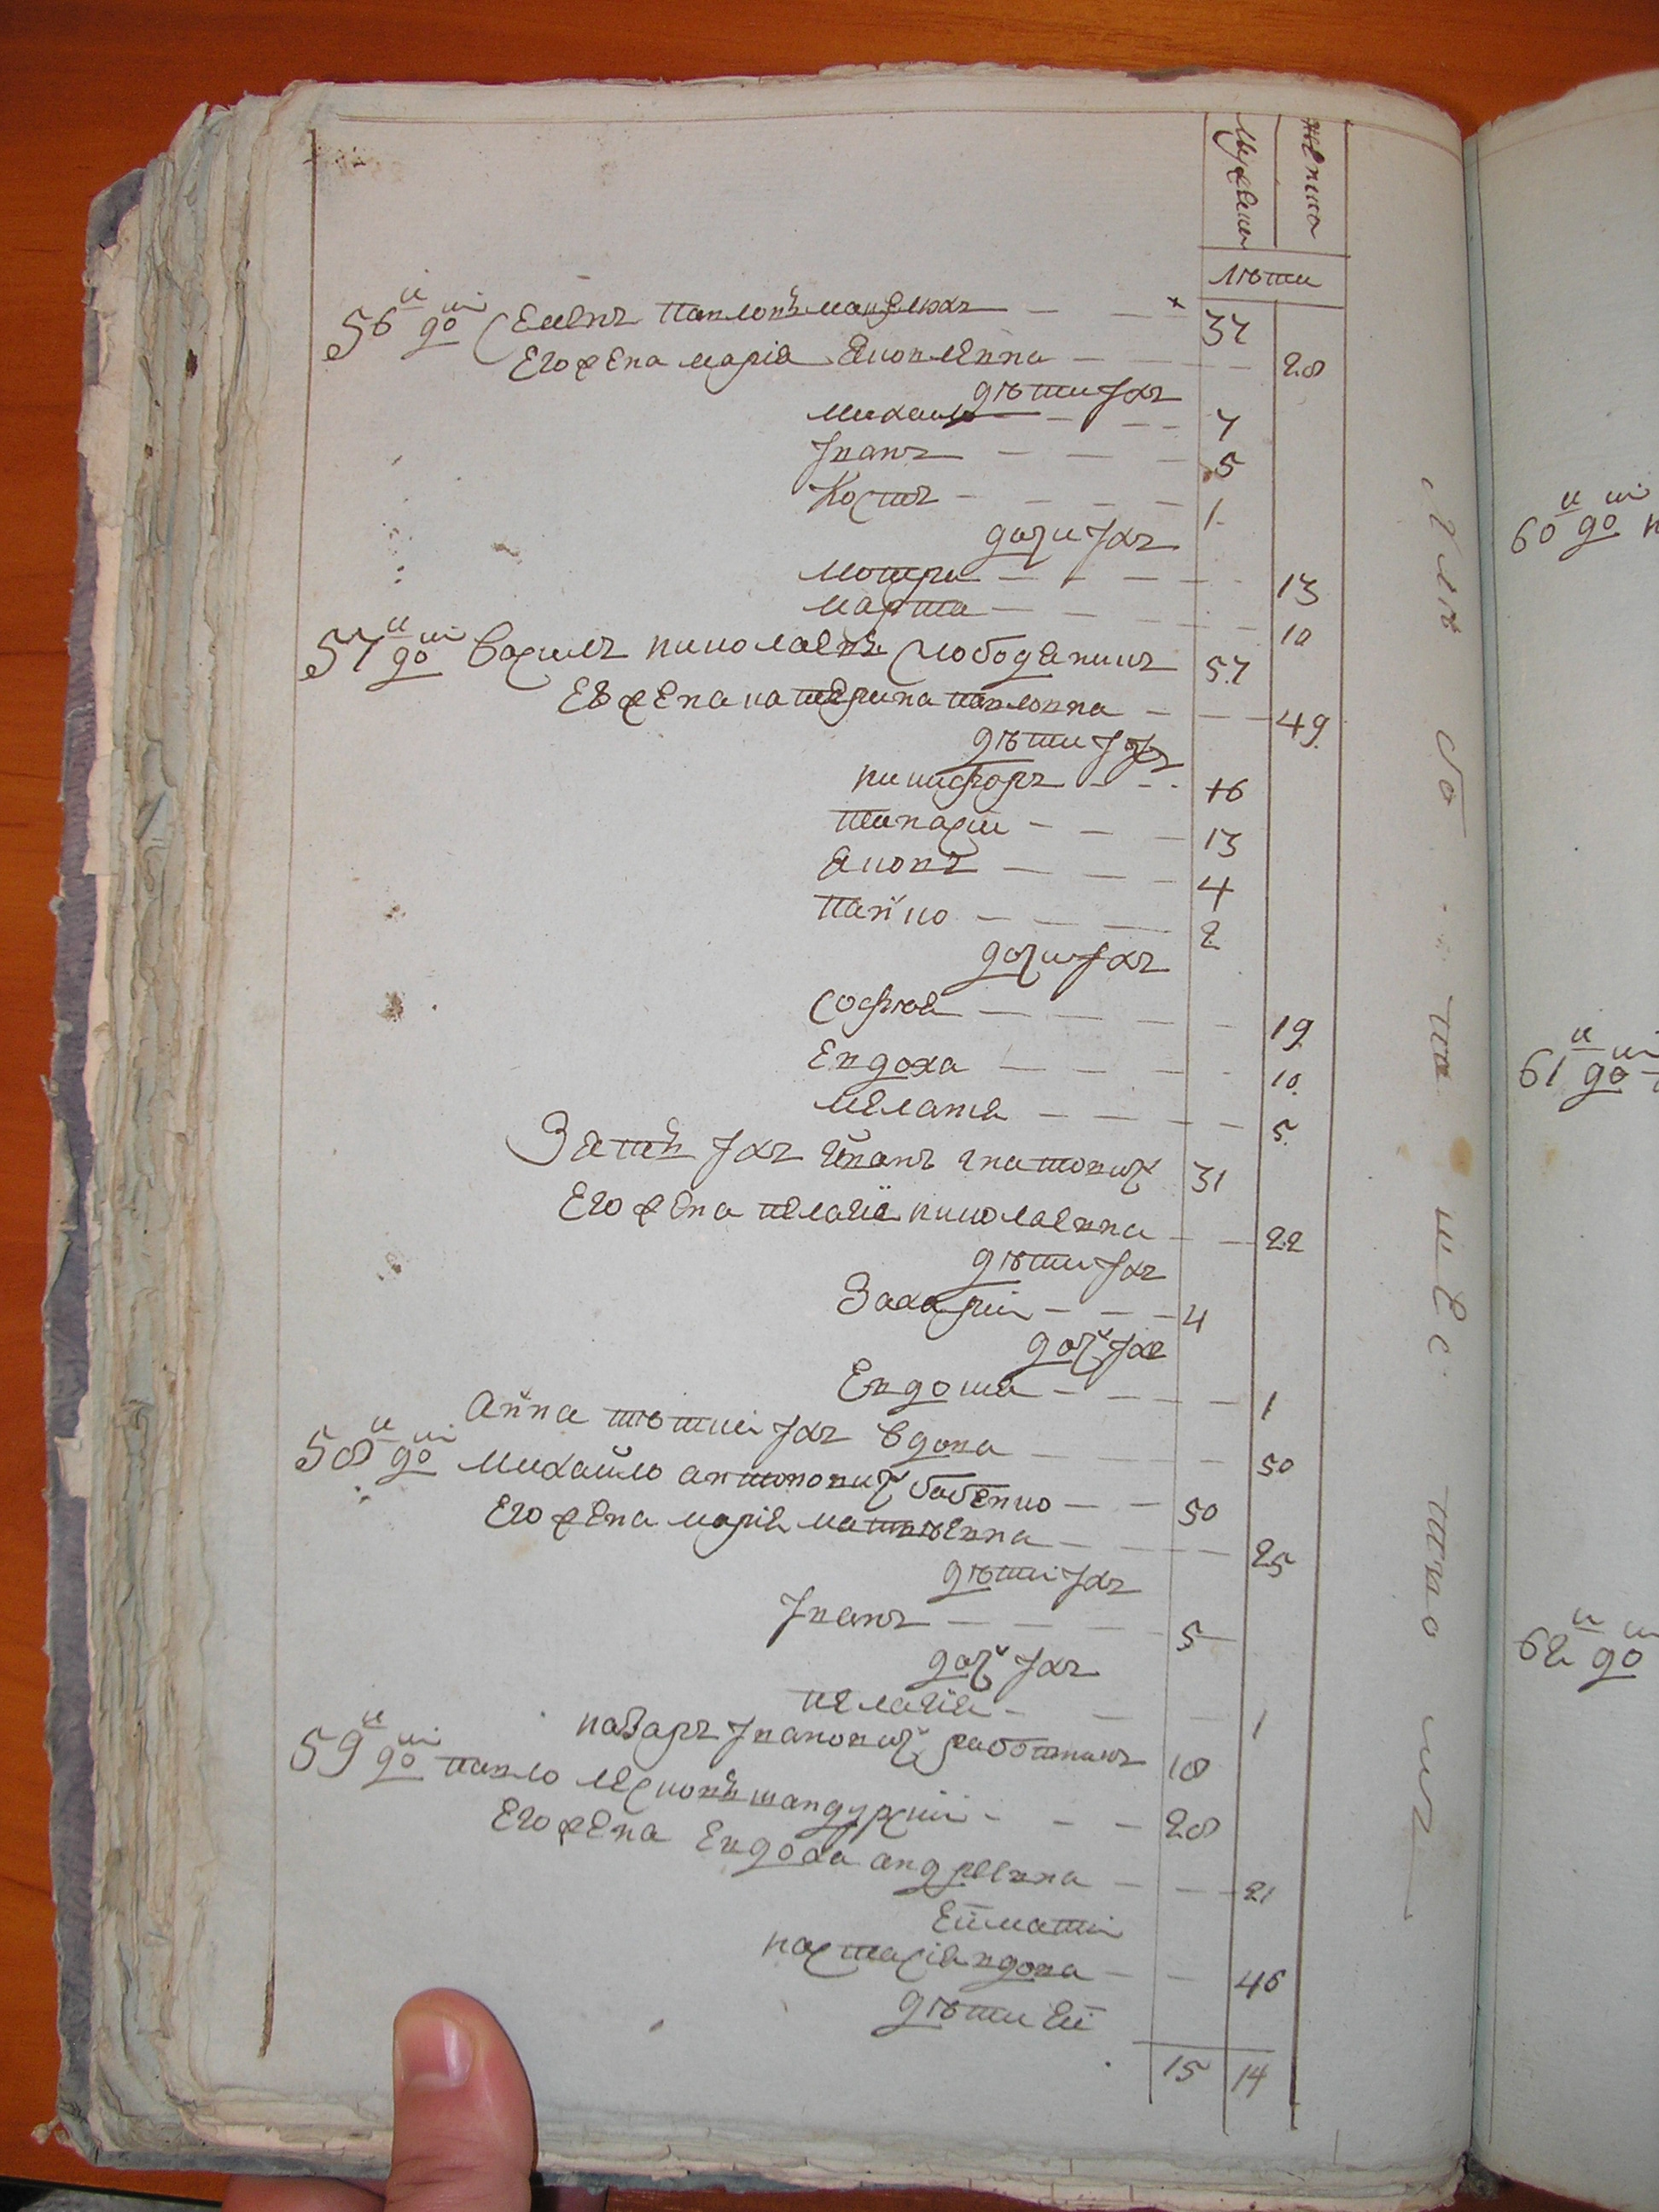 Мужеска
Женска
Лѣти
56й до Семенъ Павловъ 37
Его жена Марія Яковлевна 28
дѣти Іхъ
Михаило 7
Іванъ 5
Костя 1
дочки Іхъ
Мотря 13
Марта 10
57й до Василъ Николаевъ Слободянинъ 57
Его жена Катерина Павловна 49
дѣти Іхъ
Никифоръ 16
13
Яковъ 4
Панко 2
дочки Іхъ
Софія 19
Евдоха 10
Меланя 5
Зять Іхъ Іванъ Гнатовичъ 31
Его жена Пелагія Николаевна 22
дѣти Іхъ
Захарій 4
дочъ Іхъ
Евдошя 1
Анна тютки Іхъ вдова 50
58й до Михайло Антоновичъ Бабенко 50
Его жена Марія Матвѣевна 25
дѣти Іхъ
Іванъ 5
дочъ Іхъ
Пелагія 1
Назаръ Івановичъ работникъ 18
59й до Павло Шандурскій 28
Его жена Евдоха Андреевна 21
Еи мати
Настасія вдова 46
дѣти Еи
15 14
60й до
61 до
62 до